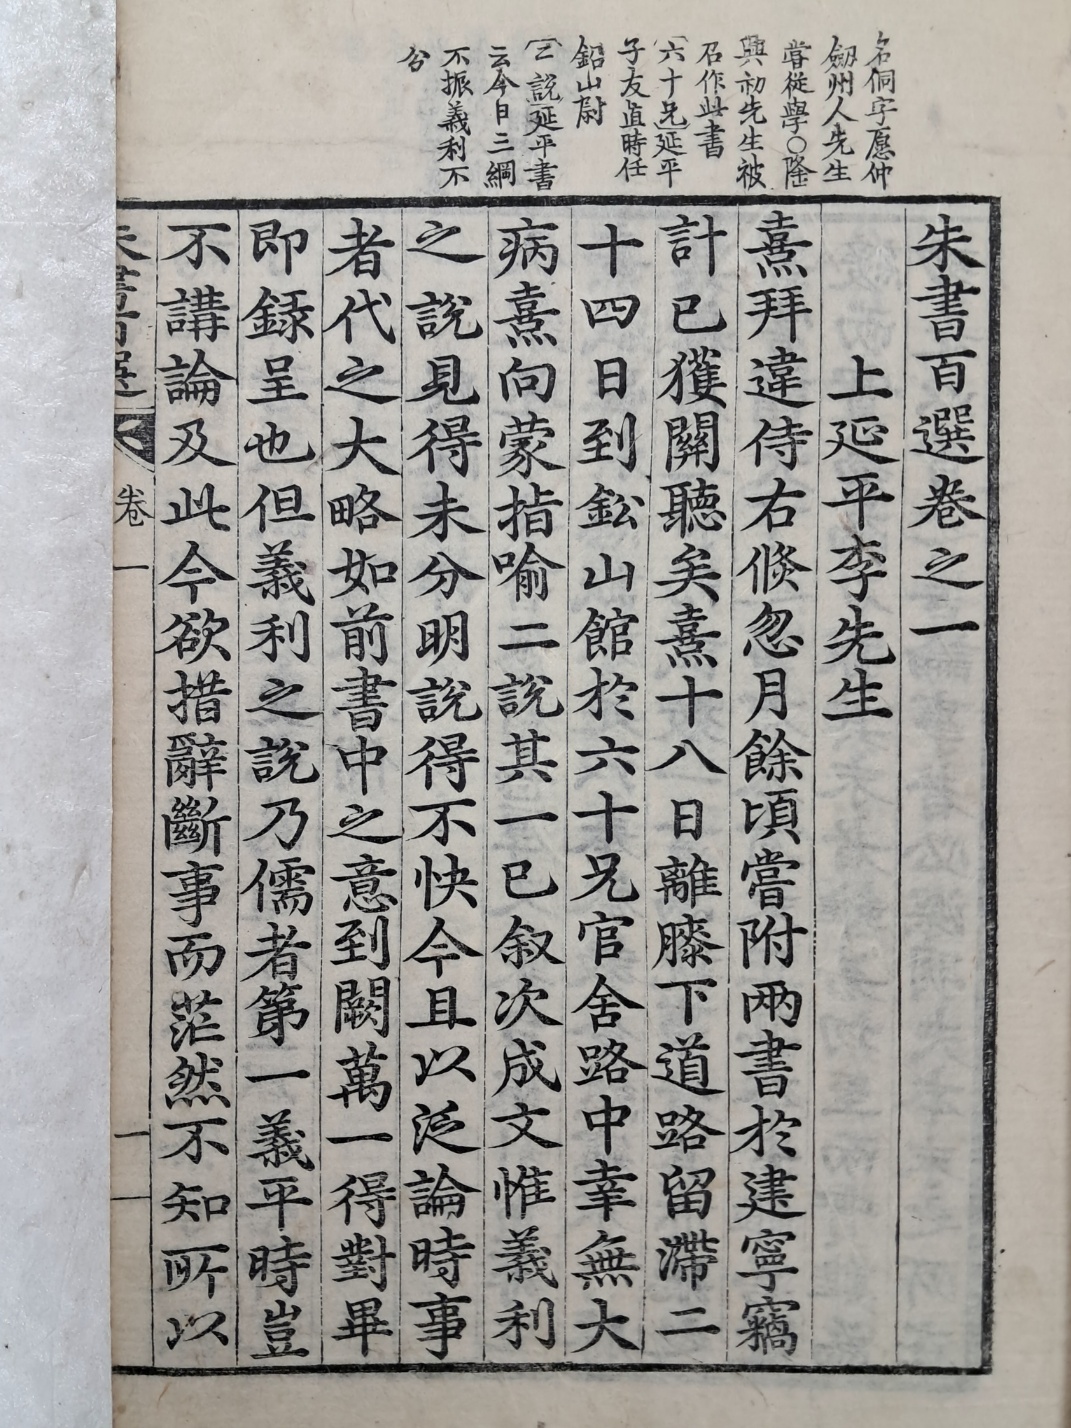 名侗字愿仲
劒州人先生
嘗從學○隆
興初先生被
召作此書
六十兄延平
子友直時任
鉛山尉
二說延平書
云今日三綱
不振義利不
分
朱書百選卷之一
上延平李先生
熹拜違侍右倐忽月餘頃嘗附兩書於建寧竊
計已獲關聽矣熹十八日離膝下道路留滯二
十四日到鈆山館於六十兄官舍路中幸無大
病熹向蒙指喻二說其一已叙次成文惟義利
之說見得未分明說得不快今且以泛論時事
者代之大略如前書中之意到闕萬一得對畢
即録呈也但義利之說乃儒者第一義平時豈
不講論及此今欲措辭斷事而茫然不知所以
朱書百選 卷一 一